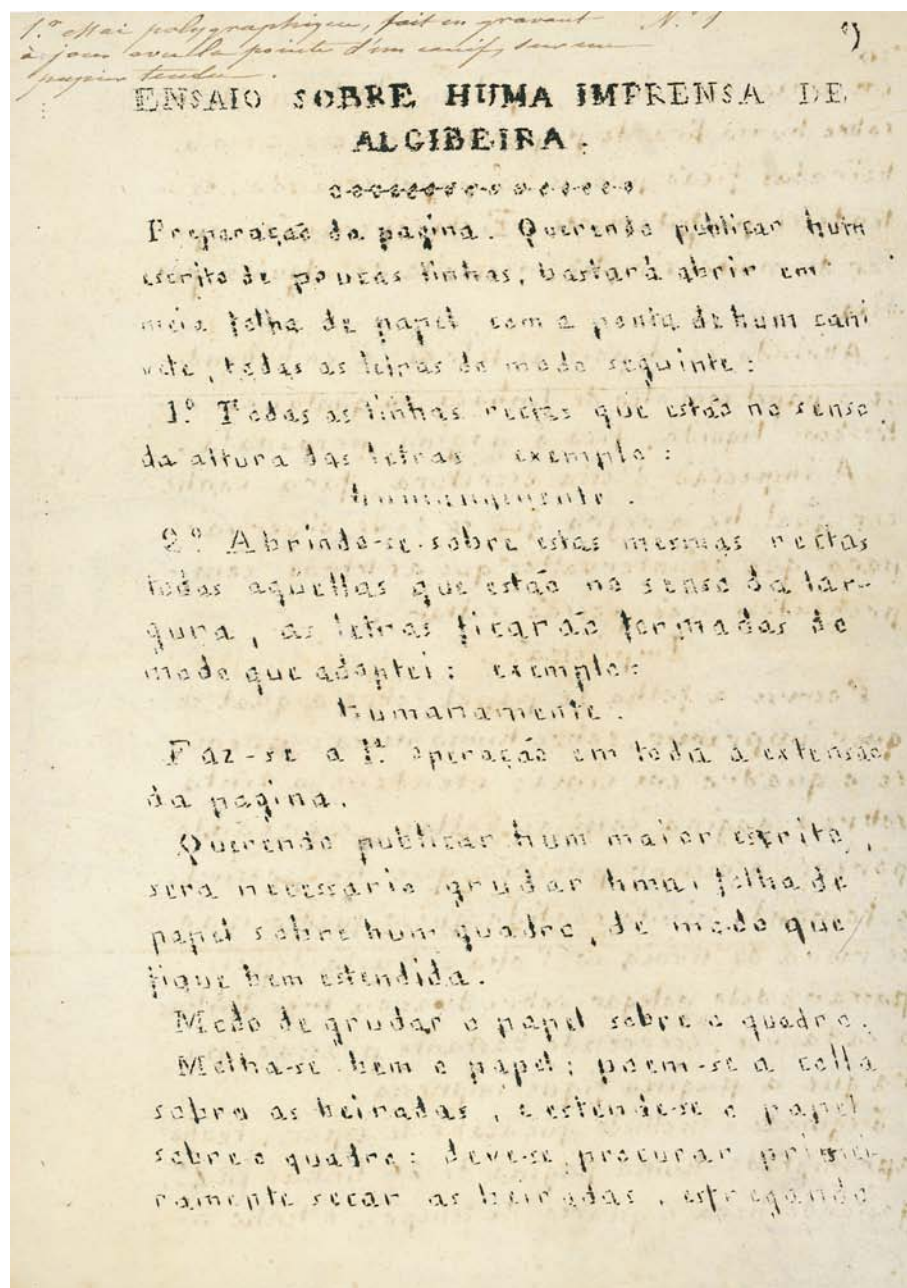 1.º essai polygraphique, fait en gravant N.º 1
à jour avec la pointe d'un canif, sur un
papier tendu.
ENSAIO SOBRE HUMA IMPRENSA DE
ALGIBEIRA.
Preparação da pagina. Querendo publicar hum
escrito de poucas linhas, bastará abrir em
meia folha de papel com a ponta de hum cani
vete, todas as letras do modo seguinte:
1.º Todas as linhas rectas que estão no senso
da altura das letras exemplo:
humanamente.
2º Abrindo-se sobre estas mesmas rectas
todas aquellas que estão no senso da lar-
gura, as letras ficarão formadas do
modo que adoptei: exemplo:
humanamente.
Faz-se a 1ª operação em toda a extensão
da pagina.
Querendo publicar hum maior escrito,
sera necessario grudar huma folha de
papel sobre hum quadro, de modo que
fique bem estendida.
Modo de grudar o papel sobre o quadro.
Molha-se bem o papel; poem-se a colla
sobre as beiradas, e estende-se o papel
sobre o quadro: deve-se procurar primei-
ramente secar as beiradas, esfregando